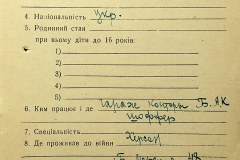 4. Національність укр.
5. Родинний стан
при ньому діти до 16 років:
1)
2)
3)
4)
5)
6. Ким працює і де Гараж конторы Б.А.К
шоффер
7. Спеціяльність
8. Де проживав до війни Херсон